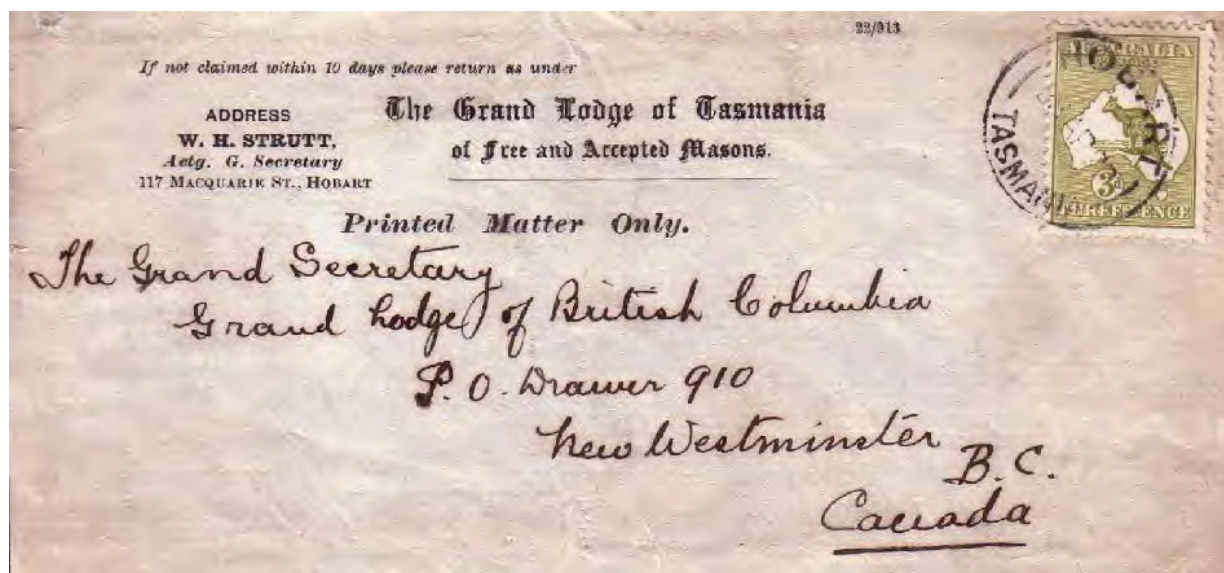 22/313
If not claimed within 10 days please return as under
ADDRESS
W. H. STRUTT,
Actg. G. Secretary
117 MACQUARIE ST., HOBART
The Grand Lodge of Tasmania
of Free and Accepted Masons.
Printed Matter Only.
AUSTRALIA
3d
THREE PENCE
HOBART
TASMANIA
The Grand Secretary
Grand Lodge of British Columbia
P. O. Drawer 910
New Westminster
B. C.
Canada